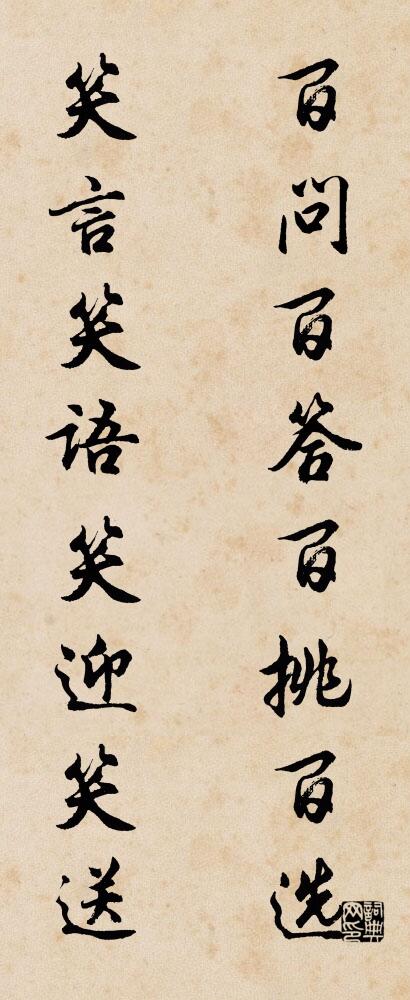 百問百答百挑百选
笑言笑語笑迎笑送
詞典网印